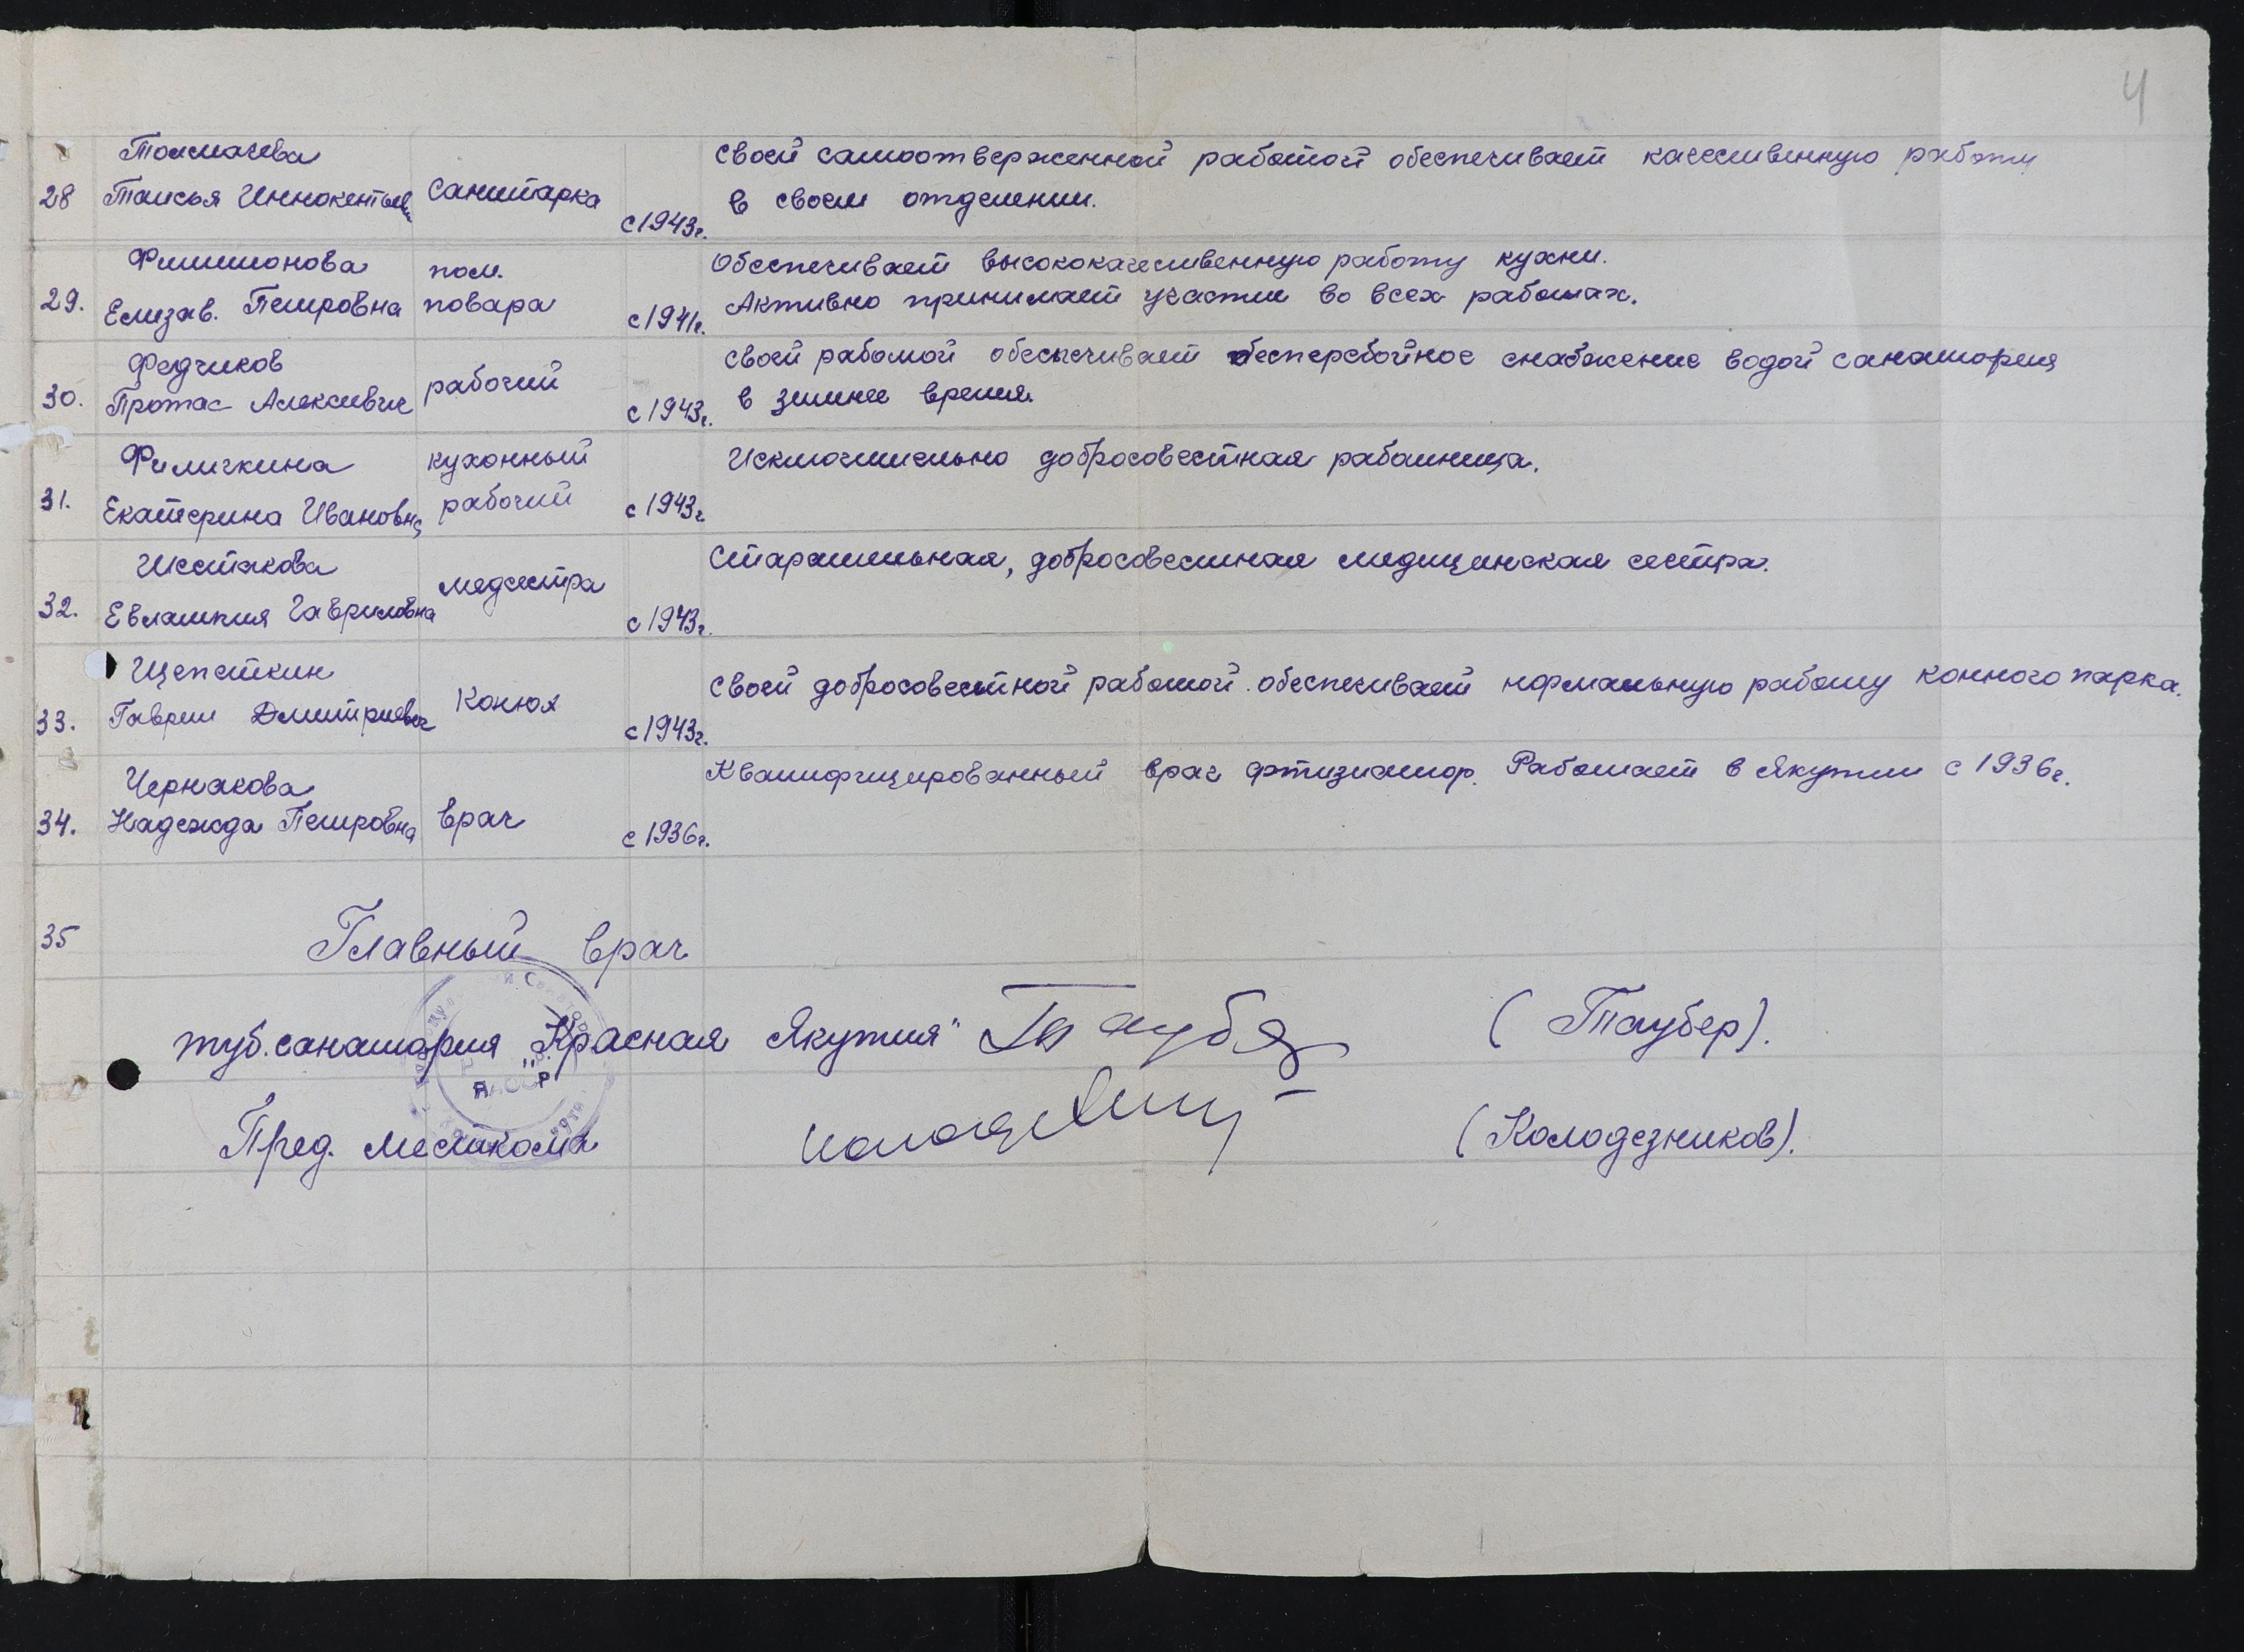 4
Толмачева
28 Таисья Иннокентьев Санитарка с 1943г. своей самоотверженной работой обеспечивает качественную работу
в своем отделении.
Филимонова пом. Обеспечивает высококачественную работу кухни.
29. Елизав. Петровна повара с 1941г. Активно принимает участие во всех работах.
Федчиков своей работой обеспечивает бесперебойное снабжение водой санатория
30. Протас Алексеевич рабочий с 1943г. в зимнее время.
Филичкина кухонный Исключительно добросовестная работница.
31. Екатерина Ивановна рабочий с 1943г.
Шестакова медсестра Старательная, добросовестная медицинская сестра.
32. Евлампия Гавриловна с 1943г.
Щепеткин своей добросовестной работой обеспечивает нормальную работу конного парка.
33. Гаврил Дмитриевич Конюх с 1943г.
Чернакова Квалифицированный врач фтизиатор. Работает в Якутии с 1936г.
34. Надежда Петровна врач с 1936г.
35 Главный врач
туб. санатория „Красная Якутия" (Таубер).
Пред. месткома (Колодезников).